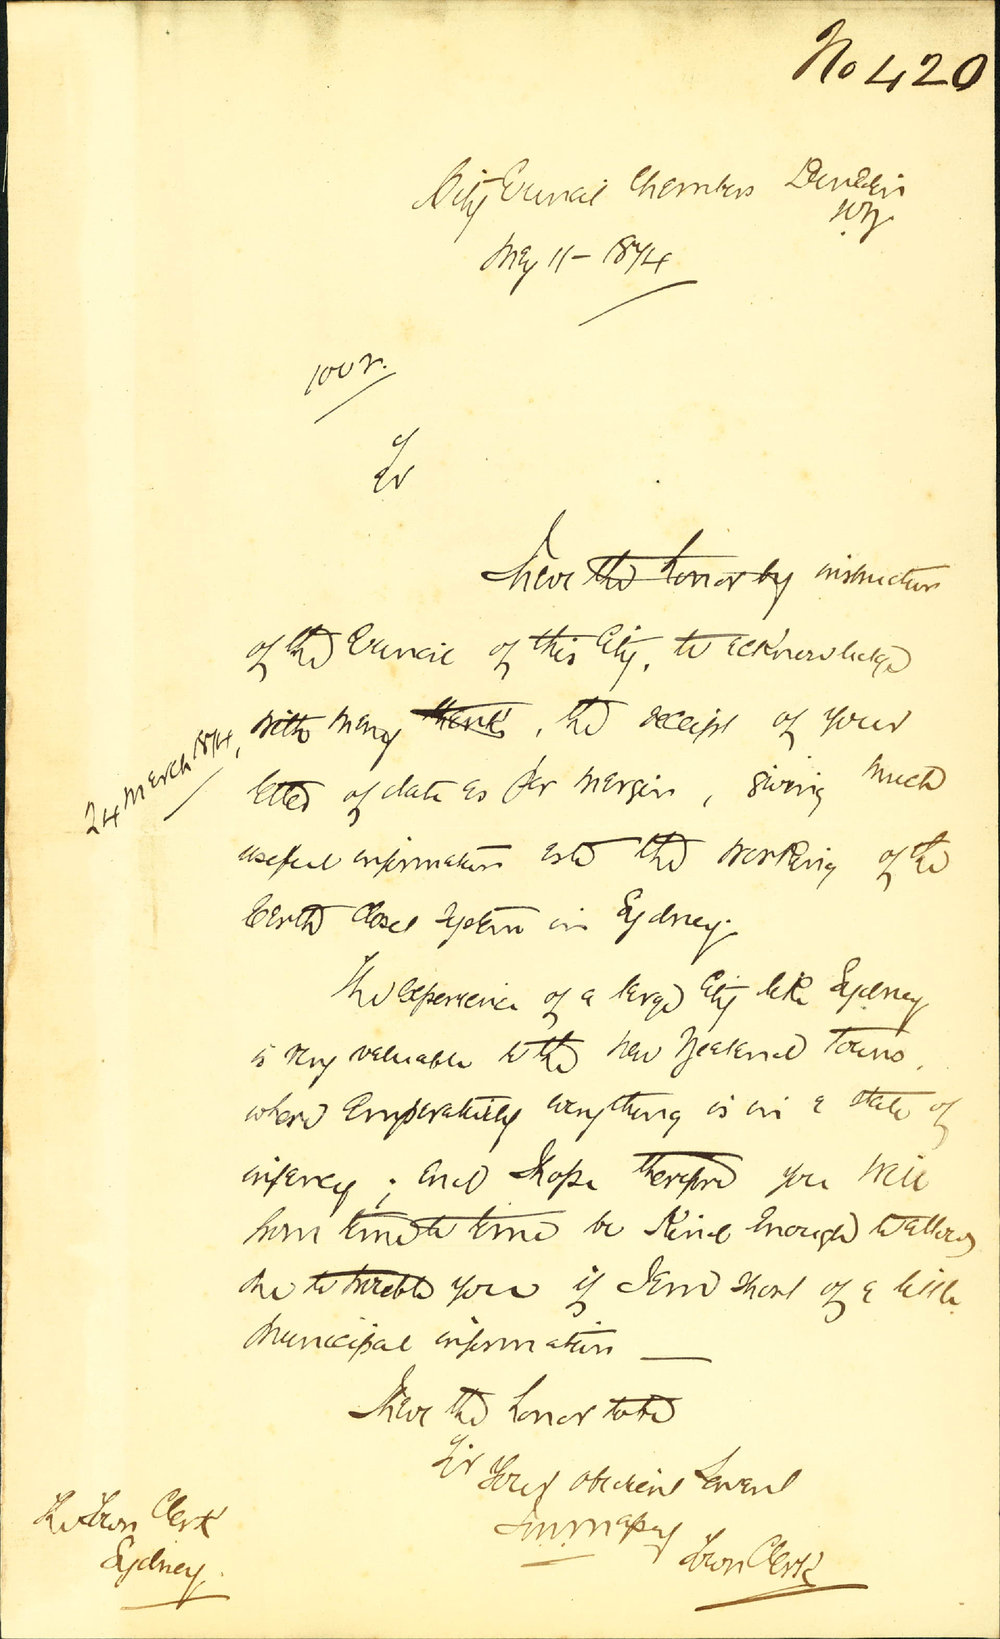 No 420
City Council Chambers Dunedin
N.Z.
May 11 - 1874
Sir
I have the honor by instruction
of the Council of this City, to acknowledge
with many thanks, the receipt of your
letter of date as per margin, giving much
24 March 1874,
useful information as to the working of the
Earth Closet System in Sydney.
The experience of a large City like Sydney
is very valuable to the New Zealand Towns,
where comparatively everything is in a state of
infancy; and I hope therefore you will
from time to time be kind enough to allow
me to trouble you if I am short of a little
Municipal information —
I have the honor to be
Sir
Your obedient Servant
Town Clerk
The Town Clerk
Sydney.